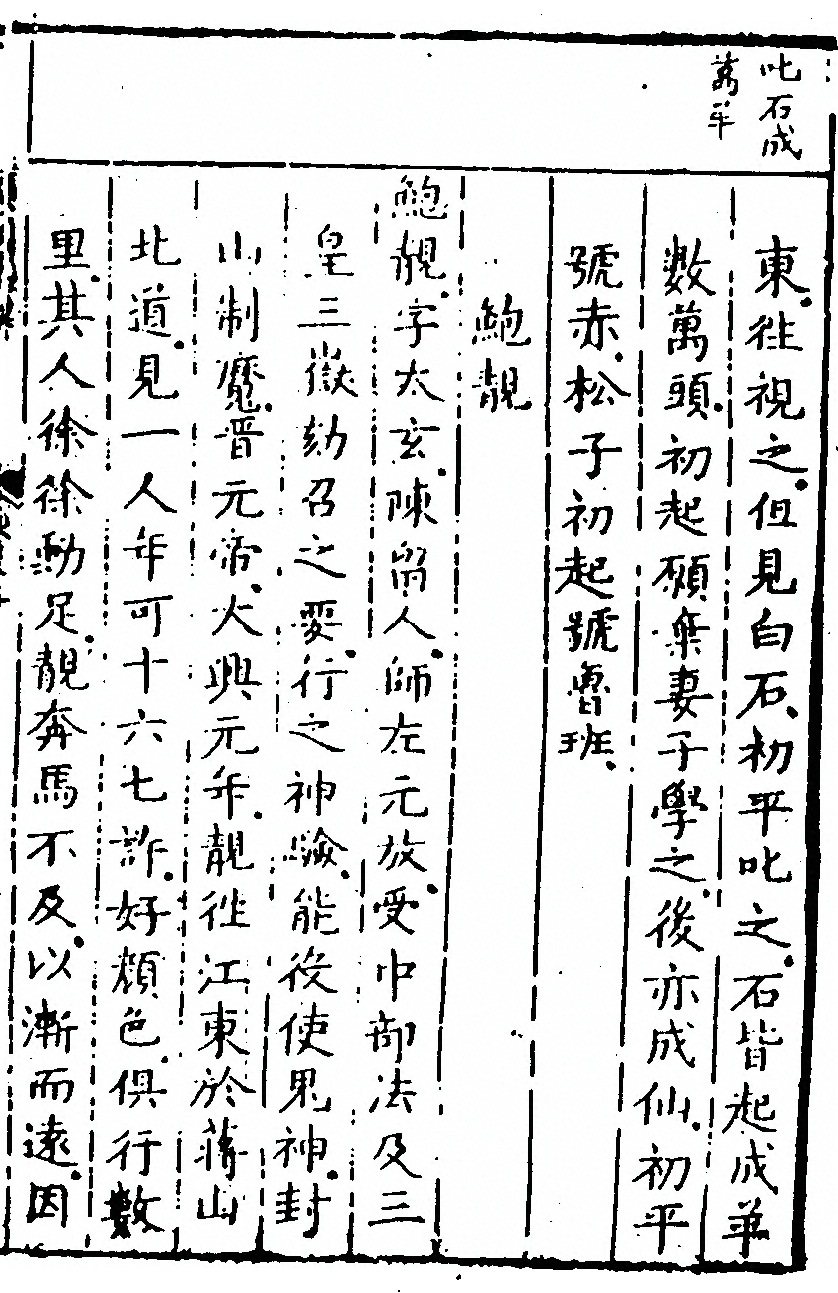 叱石成
萬羊
東。往視之。但見白石。初平叱之。石皆起成羊
數萬頭。初起願棄妻子學之。後亦成仙。初平
號赤松子初起號魯班。
鮑靚
鮑靚。字太玄。陳留人。師左元放。受中部法及三
皇三嶽劾召之要。行之神驗。能役使鬼神。封
山制魔。晋元帝。大興元年。靚往江東於蔣山
北道。見一人年可十六七許。好顏色。俱行數
里。其人徐徐動足。靚奔馬不及。以漸而遠。因